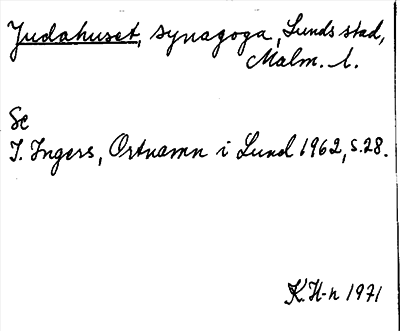 Judahuset, synagoga, Lunds stad,
Malm. l.
Se
I. Ingers, Ortnamn i Lund 1962, s. 28.
K. H-n 1971